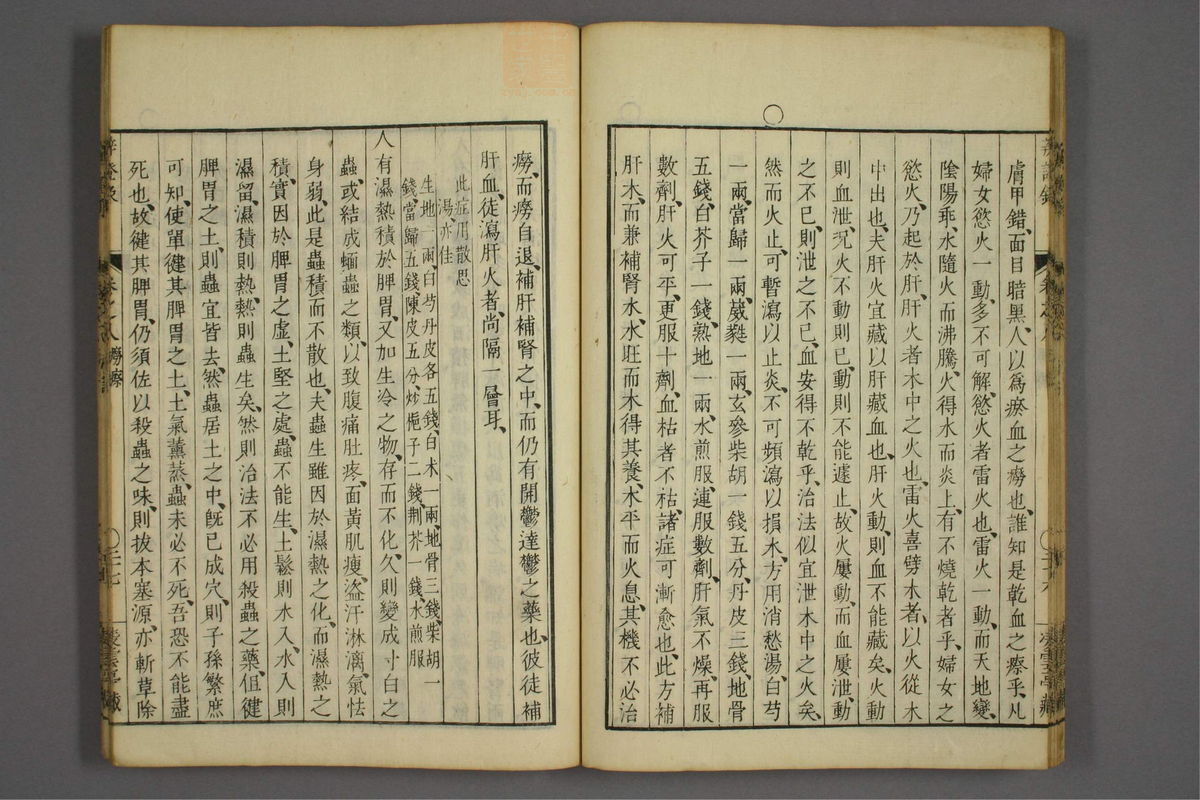 膚甲錯、面目暗黑、人以爲瘀血之癆也、誰知是乾血之瘵乎、凡
婦女慾火一動、多不可解、慾火者雷火也、雷火一動、而天地變、
陰陽乖、水隨火而沸騰、火得水而炎上、有不燒乾者乎、婦女之
慾火、乃起於肝、肝火者、木中之火也、雷火喜劈木者、以火從木
中出也、夫肝火宜藏、以肝藏血也、肝火動、則血不能藏矣、火動
則血泄、况火不動則已、動則不能遽止、故火屢動、而血屢泄、動
之不已、則泄之不已、血安得不乾乎、治法似宜泄木中之火矣、
然而火止、可暫瀉以止炎、不可頻瀉以損木、方用消愁湯、白芍
一兩、當歸一兩、葳蕤一兩、玄參柴胡一錢五分、丹皮三錢、地骨
五錢、白芥子一錢、熟地一兩、水煎服、連服數劑、肝氣不燥、再服
數劑、肝火可平、更服十劑、血枯者不枯、諸症可漸愈也、此方補
肝木、而兼補腎水、水旺而木得其養、木平而火息、其機不必治
癆、而癆自退、補肝補腎之中、而仍有開鬱達鬱之藥也、彼徒補
肝血、徒瀉肝火者、尚隔一層耳、
此症用散思
湯、亦佳
生地一兩、白芍丹皮各五錢、白朮一兩、地骨三錢、柴胡一
錢、當歸五錢、陳皮五分、炒梔子二錢、荆芥一錢、水煎服
人有濕熱積於脾胃、又加生冷之物、存而不化、久則變成寸白之
蟲、或結成蛔蟲之類、以致腹痛肚疼、面黃肌瘦、盜汗淋漓、氣怯
身弱、此是蟲積而不散也、夫蟲生雖因於濕熱之化、而濕熱之
積、實因於脾胃之虛、土堅之處、蟲不能生、土鬆則水入、水入則
濕留、濕積則熱、熱則蟲生矣、然則治法不必用殺蟲之藥、但健
脾胃之土、則蟲宜皆去、然蟲居土之中、旣已成穴、則子孫繁庶
可知、使單健其脾胃之土、土氣薰蒸、蟲未必不死、吾恐不能盡
死也、故健其脾胃、仍須佐以殺蟲之味、則拔本塞源、亦斬草除
癆瘵
○二十七